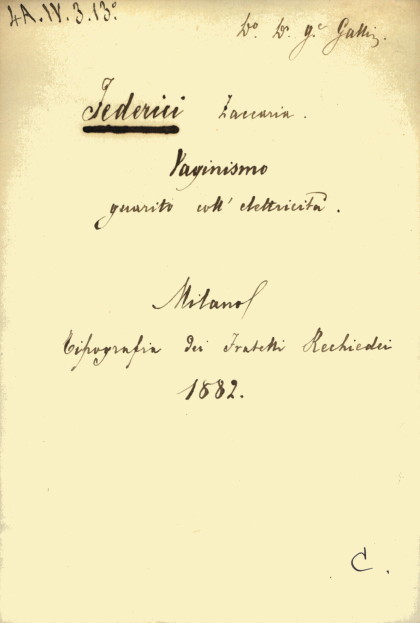 4A.IV.3.13º
Federici Zaccaria.
Vaginismo
guarito coll' elettricità.
Milano
Tipografia dei Fratelli Rechiedei
1882.
C.